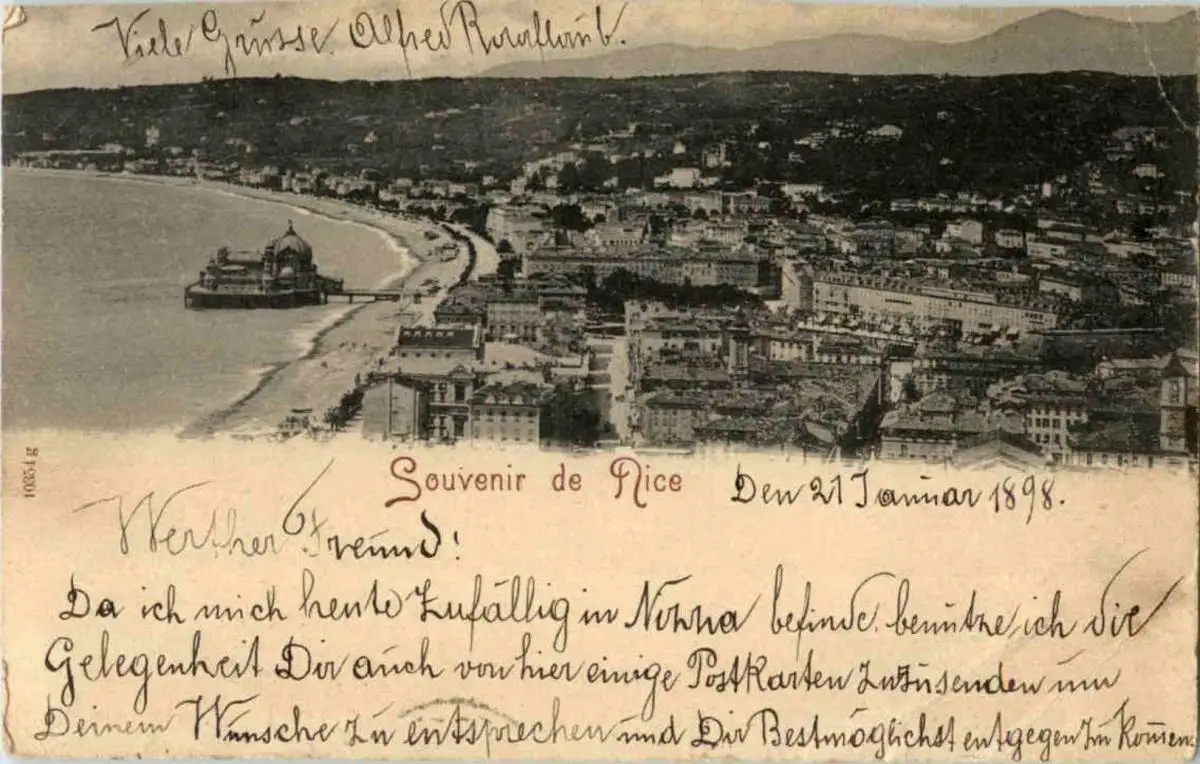 Viele Grüsse. Alfred
10354 g
Souvenir de Nice
Den 21 Januar 1898.
Werther Freund!
Da ich mich heute Zufällig in Nizza befinde, benütze ich die
Gelegenheit Dir auch von hier einige Postkarten zuzusenden um
Deinem Wunsche zu entsprechen und Dir Bestmöglichst entgegen zu kom̄en.